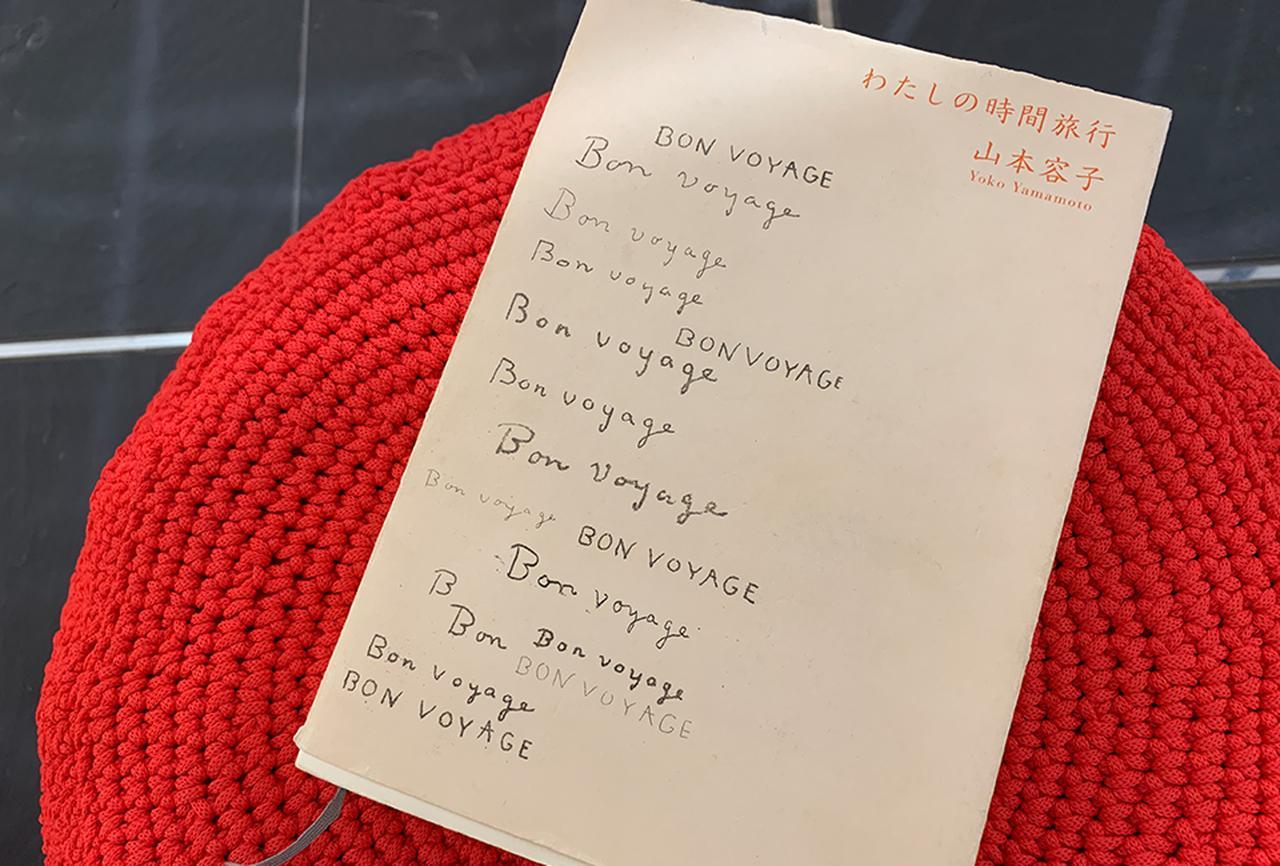 わたしの時間旅行
山本容子
Yoko Yamamoto
BON VOYAGE
Bon voyage
Bon voyage
Bon voyage
BON VOYAGE
Bon voyage
Bon voyage
Bon Voyage
Bon voyage
BON VOYAGE
Bon voyage
B
Bon Bon voyage
BON VOYAGE
Bon voyage
BON VOYAGE